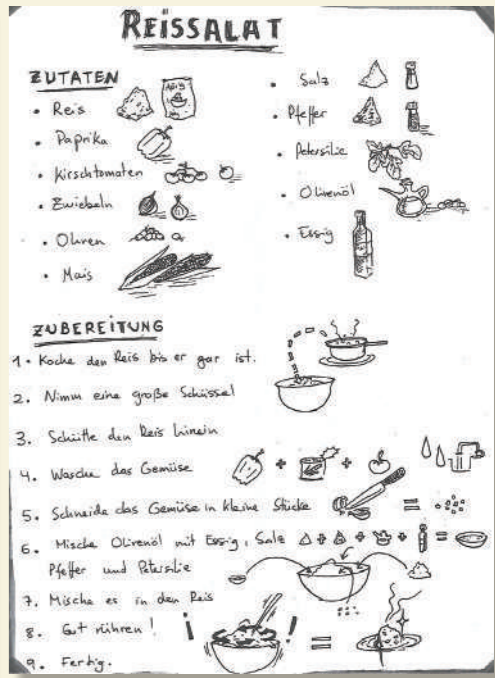 REISSALAT
ZUTATEN
• Reis
• Paprika
• Kirschtomaten
• Zwiebeln
• Oliven
• Mais
• Salz
• Pfeffer
• Petersilie
• Olivenöl
• Essig
ZUBEREITUNG
1. Koche den Reis bis er gar ist.
2. Nimm eine große Schüssel
3. Schütte den Reis hinein
4. Wasche das Gemüse
5. Schneide das Gemüse in kleine Stücke
6. Mische Olivenöl mit Essig, Salz
Pfeffer und Petersilie
7. Mische es in den Reis
8. Gut rühren!
9. Fertig.